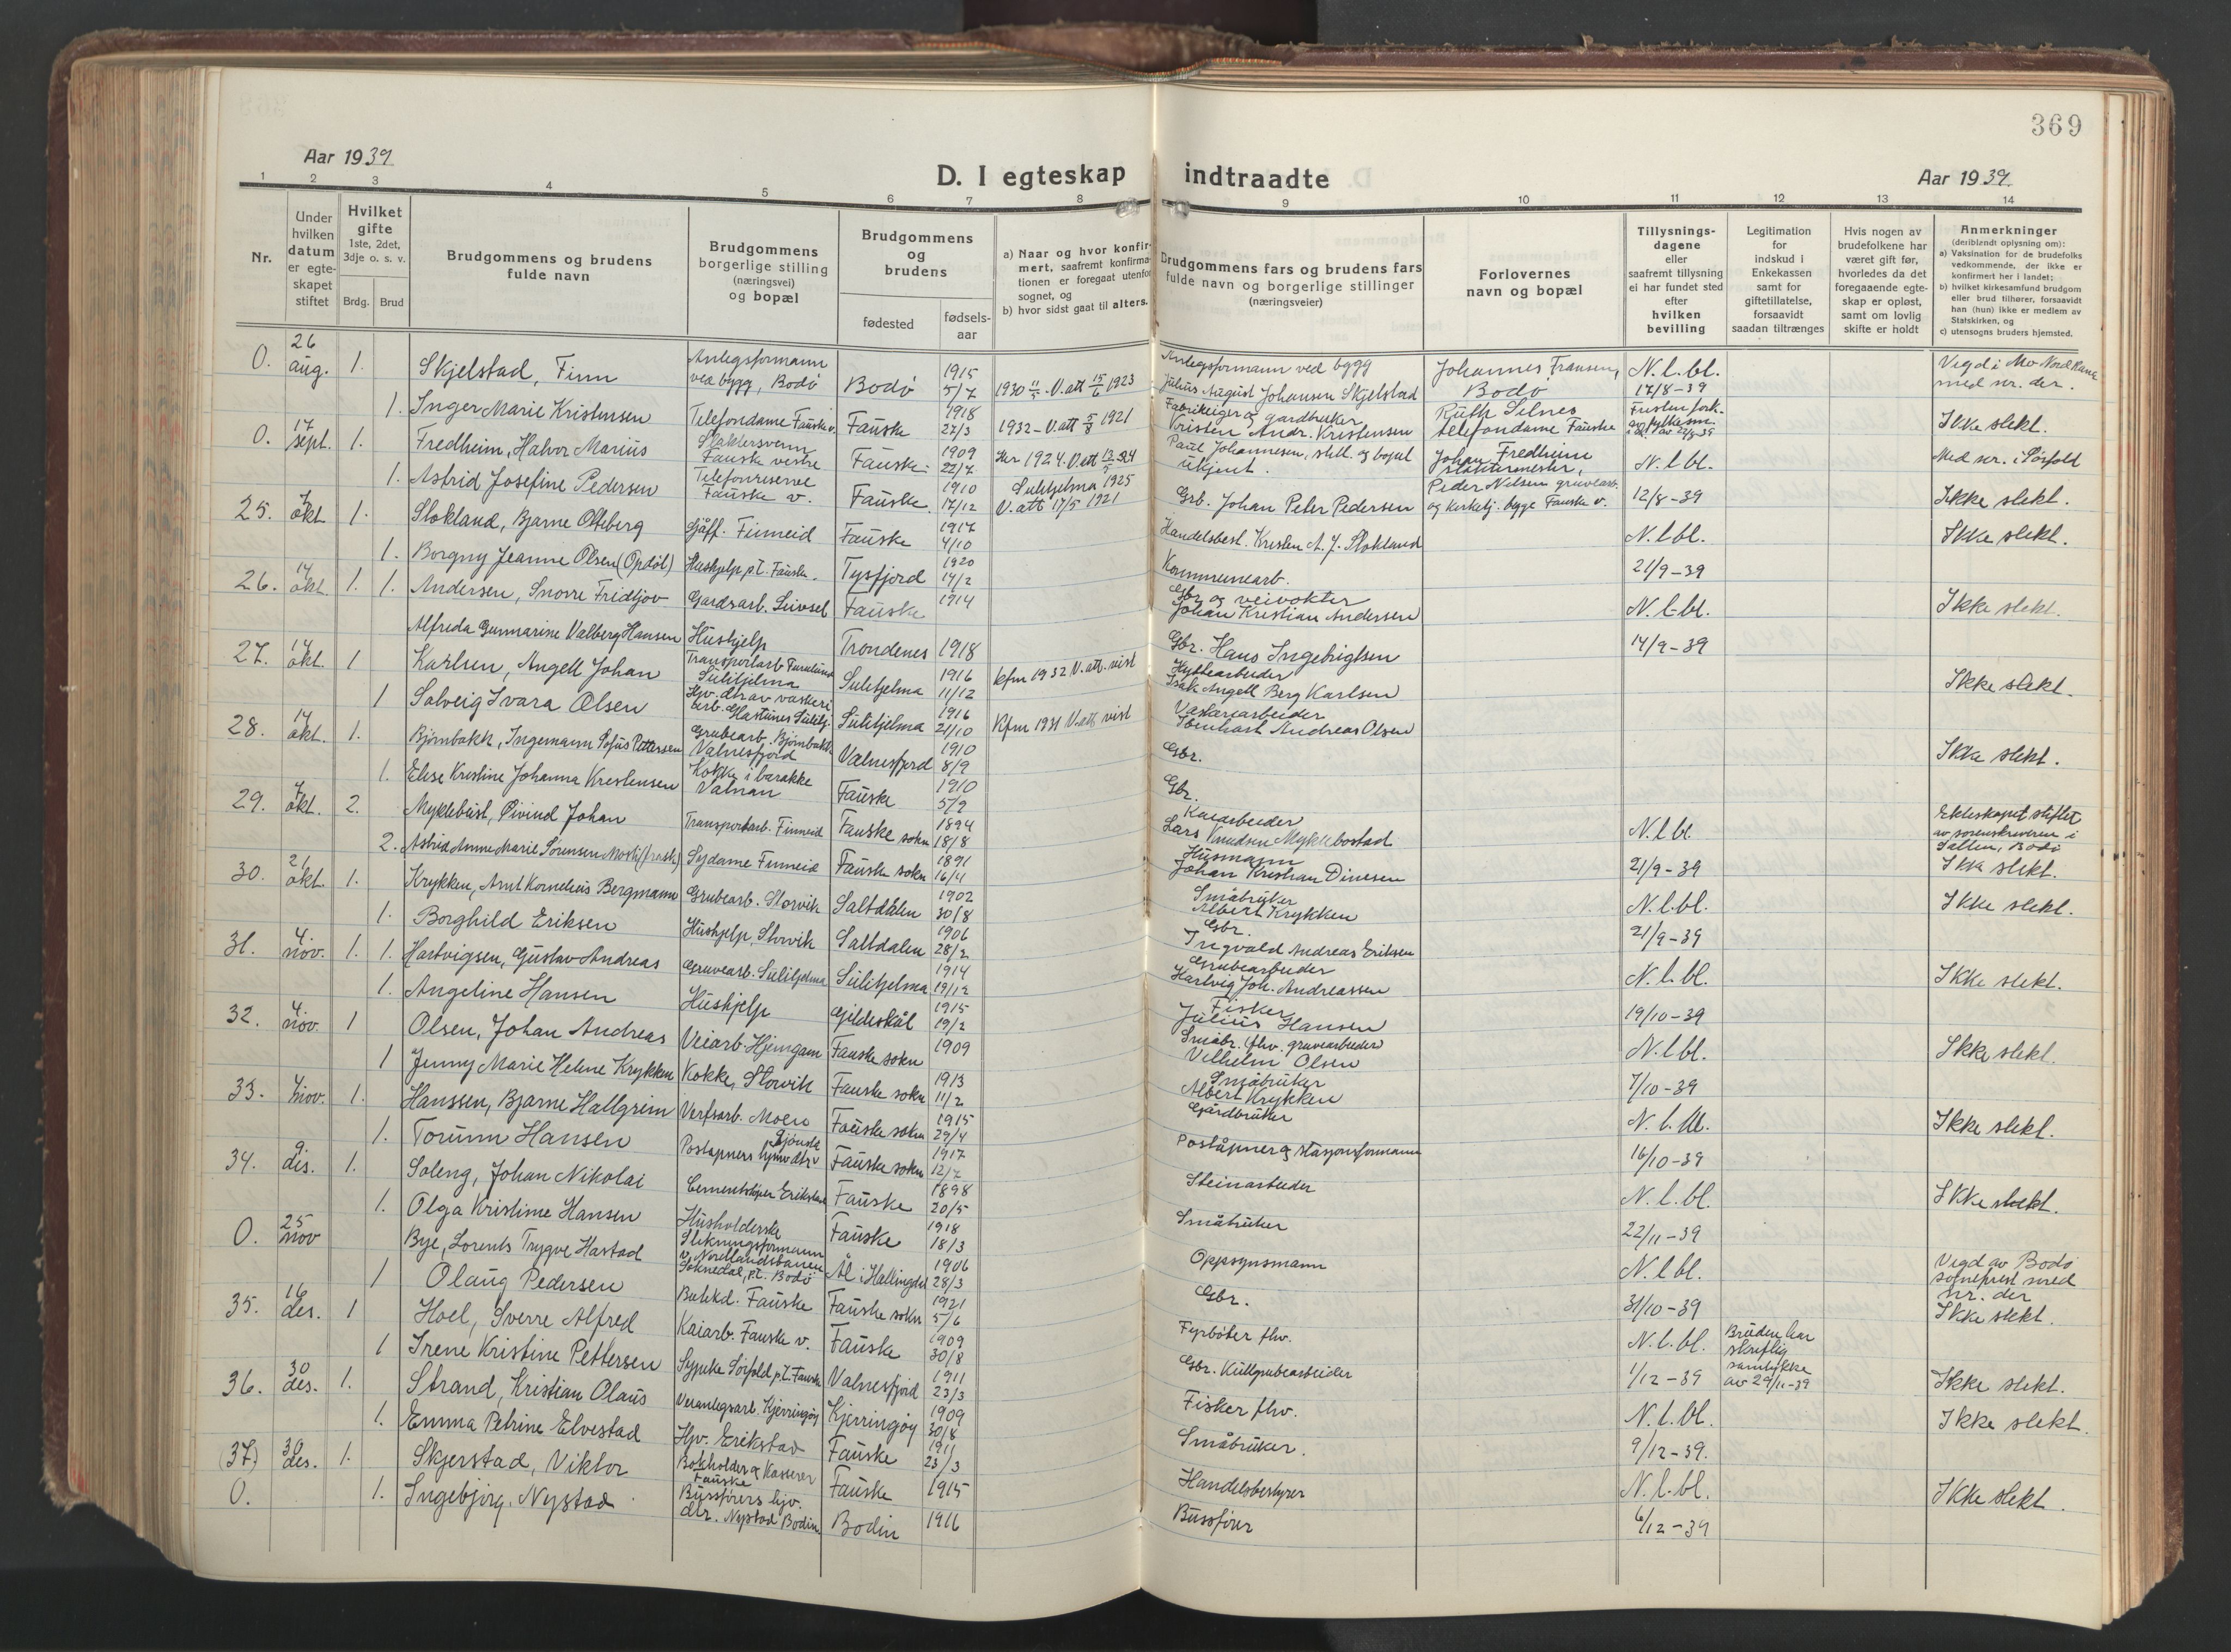 369
Aar 1939
D. I egteskap indtraadte
Aar 1939
1 2 3 4 5 6 7 8 9 10 11 12 13 14
Nr.
Under hvilken datum er egteskapet stiftet
Hvilket gifte
1ste, 2det, 3dje o. s. v.
Brdg. Brud
Brudgommens og brudens fulde navn
Brudgommens borgerlige stilling (næringsvei) og bopæl
Brudgommens og brudens
fødested
fødsels-aar
a) Naar og hvor konfirmert, saafremt konfirmationen er foregaat utenfor sognet, og
b) hvor sidst gaat til alters.
Brudgommens fars og brudens fars fulde navn og borgerlige stillinger (næringsveier)
Forlovernes navn og bopæl
Tillysningsdagene eller saafremt tillysning ei har fundet sted efter hvilken bevilling
Legitimation for indskud i Enkekassen samt for giftetillatelse, forsaavidt saadan tiltrænges
Hvis nogen av brudefolkene har været gift før, hvorledes da det foregaaende egteskap er opløst, samt om lovlig skifte er holdt
Anmerkninger
(deriblandt oplysning om):
a) Vaksination for de brudefolks vedkommende, der ikke er konfirmert her i landet;
b) hvilket kirkesamfund brudgom eller brud tilhører, forsaavidt han (hun) ikke er medlem av Statskirken, og
c) utensogns bruders hjemsted.
0. 26 aug. 1. Skjelstad, Finn Anlegsformann ved bygg, Bodø Bodø 1915 5/7 1930 V. att 15/6 1923 Anlegsformann ved bygg Julius August Johansen Skjelstad Johannes Fransen, Bodø N. l. bl. 17/8-39 Vigd i Mo med nr. der.
1. Inger Marie Kristensen Telefondame Fauske v. Fauske 1918 27/3 1932 - V. att 5/8 1921 Fabrikeiger og gardbruker Kristen Andr. Kristensen Ruth Selnes telefondame Fauske Ikke slekt.
0. 17 sept. 1. Fredheim, Halvor Marius Slaktersvenn Fauske vestre Fauske 1909 22/7 1924. V. att Paul Johannesen, still. og bopel ukjent. Johan Fredheim slaktermester, N. l. bl. Med nr. i Sørfold
1. Astrid Josefine Pedersen Telefonreserve Fauske v. Fauske 1910 17/12 Sulitjelma 1925 V. att 17/5 1921 Grb. Johan Peter Pedersen Peder Nilsen gruvearb. og kirketj. bygge Fauske v. 12/8-39 Ikke slekt.
25. 7 okt. 1. Stokland, Bjarne Olteberg Sjåff. Finneid Fauske 1917 4/10 Handelsbest. Kristen A. J. Stokland N. l. bl. Ikke slekt.
1. Borgny Jeanne Olsen (Opdøl) Hushjelp p.t. Fauske. Tysfjord 1920 14/2 Kommunearb. 21/9-39
26. 14 okt. 1. 1. Andersen, Snorre Fridtjov Gardsarb. Leivset Fauske 1914 Gbr og veivokter Johan Kristian Andersen N. l. bl. Ikke slekt.
Alfreda Gunmarine Valberg Hansen Hushjelp Trondenes 1918 Gbr. Hans Ingebrigtsen 14/9-39
27. 14 okt. 1 Karlsen, Angell Johan Transportarb Furulund Sulitjelma Sulitjelma 1916 11/12 kfm 1932 V. att. vist Hyttearbeider Isak Angell Berg Karlsen Ikke slekt.
1 Solveig Ivara Olsen Hjv. dtr av vaskeriarb. Sulitj. Sulitjelma 1916 21/10 Kfm 1931 V. att. vist Vaskeriarbeider Andreas Olsen
28. 14 okt. 1. Bjørnbakk, Ingemann Sofus Pettersen Grubearb. Bjørnbakk Valnesfjord Valnesfjord 1910 8/9 Gbr. Ikke slekt.
1. Elise Kristine Johanna Kristensen Kokke i barakke Valnan Fauske 1910 5/2 Gbr.
29. 7 okt. 2. Myklebust, Øivind Johan Transportarb. Finneid Fauske sokn 1894 18/8 Kaiarbeider Lars Knudsen Myklebostad N. l. bl. Ekteskapet stiftet av sorenskriveren i Salten, Bodø
2. Astrid Anne Marie Sørensen Sydame Finneid Fauske sokn 1891 16/4 Husmann Johan Kristian Dinesen 21/9-39 Ikke slekt.
30. 21 okt. 1. Krykken, Arnt Kornelius Bergmann Grubearb. Storvik Saltdalen 1902 30/8 Småbruker Albert Krykken N. l. bl. Ikke slekt.
1. Borghild Eriksen Hushjelp, Storvik Saltdalen 1906 28/2 Gbr. Ingvald Andreas Eriksen 21/9-39
31. 4. nov. 1. 1. Hartvigsen, Gustav Andreas Gruvearb. Sulitjelma Sulitjelma 1914 19/12 Grubearbeider Hartvig Joh. Andreassen N. l. bl. Ikke slekt.
1. Angeline Hansen Hushjelp Gildeskål 1915 19/2 Fisker Julius Hansen 19/10-39
32. 4. nov. 1 Olsen, Johan Andreas Veiarb. Hjemgam Fauske sokn 1909 Småbr. (fhv. gruvearbeider) Vilhelm Olsen N. l. bl. Ikke slekt.
1 Jenny Marie Helene Krykken Kokke, Storvik Fauske sokn 1913 11/2 Småbruker Albert Krykken 7/10-39
33. 4 nov. 1. Hanssen, Bjarne Hallgrim Verfsarb. Moen Fauske sokn 1915 29/4 Gårdbruker N. l. bl. Ikke slekt.
1. Torunn Hansen Postapners hjmv dtr Djønste Fauske sokn 1917 12/7 Poståpner og stasjonsformann 16/10-39
34. 9. des. 1. Soleng, Johan Nikolai Cementstøper Erikstad Fauske 1898 20/5 Steinarbeider N. l. bl. Ikke slekt.
1. Olga Kristine Hansen Husholderske Fauske 1918 18/3 Småbruker 22/11-39
0. 25 nov Bye, Lorents Trygve Harstad Stikningsformann v. Nordlandsbanen Soknedal, p.t. Bodø Ål i Hallingdal 1906 28/3 Oppsynsmann N. l. bl. Vigd av Bodø sogneprest med nr. der
1 Olaug Pedersen Butikd. Fauske Fauske sokn 1921 5/6 Gbr. 31/10-39 Ikke slekt.
35. 16 des. 1 Hoel, Sverre Alfred Kaiarb. Fauske v. Fauske 1909 30/8 Fyrbøter fhv. N. l. bl. Bruden har skriftlig samtykke av 29/11-39
1 Irene Kristine Pettersen Sypike Sørfold p.t. Fauske Valnesfjord 1911 23/3 Gbr. Kullgrubearbeider 1/12-39 Ikke slekt.
36. 30 des. 1. Strand, Kristian Olaus Veranlegsarb. Kjerringøy Kjerringøy 1909 30/8 Fisker fhv. N. l. bl. Ikke slekt.
1. Emma Petrine Elvestad Hjv. Erikstad Fauske 1911 23/3 Småbruker. 9/12-39.
(37) 30 des. 1. Skjerstad, Viktor Bokholder og Kasserer Fauske Fauske 1915 Handelsbestyrer N. l. bl. Ikke slekt.
0. 1. Ingebjørg Nystad Bussførers hjv. dtr. Nystad Bodin Bodin 1916 Bussfører 6/12-39